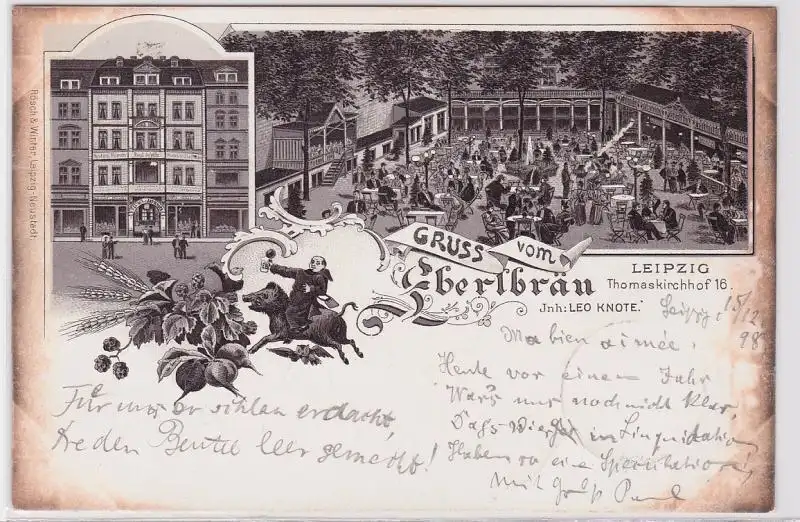 Rösch & Winter, Leipzig-Neustadt
GRUSS vom
Eberlbräu
LEIPZIG
Thomaskirchhof 16.
Jnh: LEO KNOTE.
Leipzig, 15/12
98
Ma bien aimée.
Heute vor einem Jahr
War's uns noch nicht klar,
Dass wir in Liquidation
Haben so eine Spekulation!
Mit Gruß Paul
Für uns schlau erdacht,
den Beutel leer gemacht!